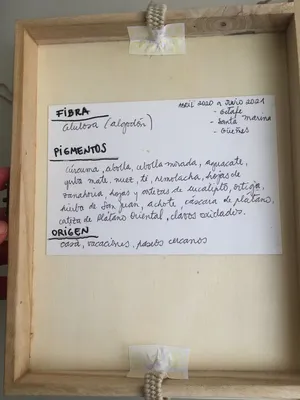 ABRIL 2020 a JUNIO 2021
- Getafe
- Santa Marina
- Güeñes
FIBRA
Celulosa (algodón)
PIGMENTOS
Cúrcuma, cebolla, cebolla morada, aguacate,
yerba mate, nuez, té, remolacha, hojas de
zanahoria, hojas y cortezas de eucalipto, ortiga,
hierba de San Juan, achote, cáscara de plátano,
corteza de plátano oriental, clavos oxidados.
ORIGEN
casa, vacaciones, paseos cercanos